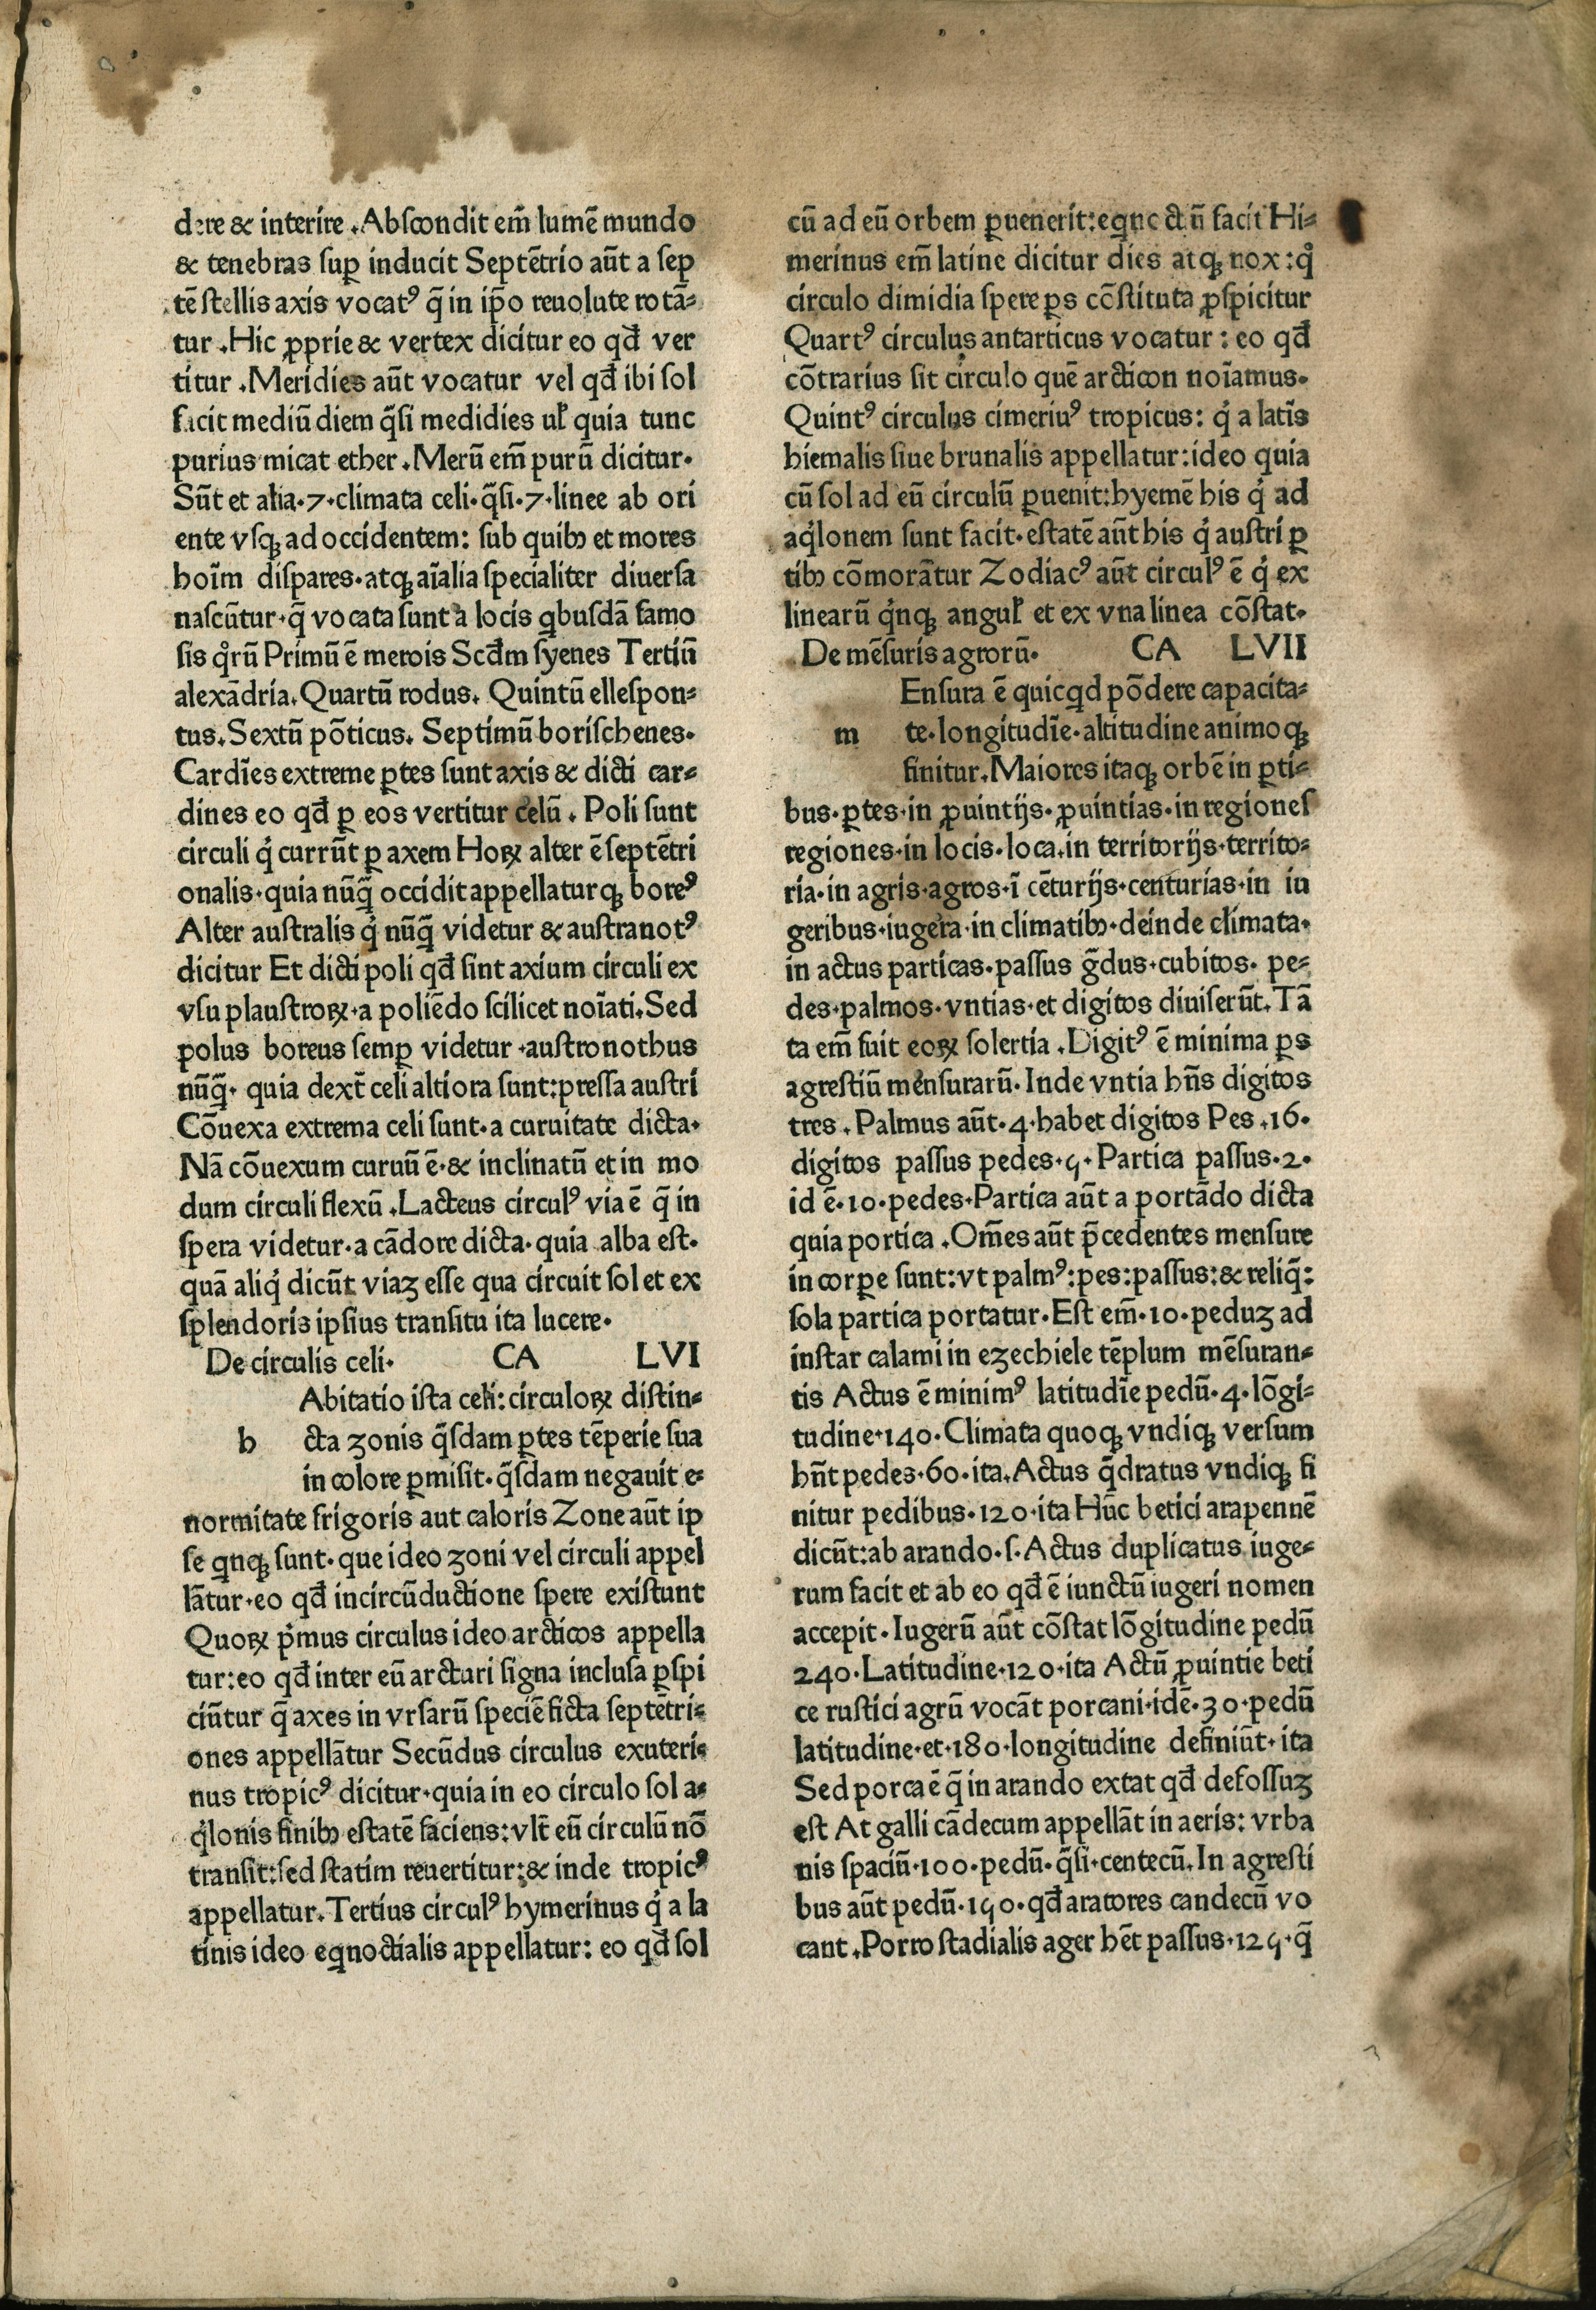 dere & interire .Abſcondit em̄ lumē mundo
& tenebras suꝑ inducit Septētrio aūt a sep
tē ſtellis axis vocatꝰ q̄ in ip̄o reuolute rotā⸗
tur .Hic ꝓprie & vertex dicitur eo qd̄ ver
titur .Meridies aūt vocatur vel qd̄ ibi ſol
facit mediū diem q̄ſi medidies uł quia tunc
purius micat ether .Merū em̄ purū dicitur.
Sūt et alia.7.climata celi.q̄ſi.7.linee ab ori
ente vſqꝫ ad occidentem: ſub quibꝫ et mores
hoīm diſpares.atqꝫ aīalia ſpecialiter diuerſa
naſcūtur.q̄ vocata ſunt a locis qͥbuſdā famo
ſis qͦrū Primū ē merois Scd̄m ſyenes Tertiū
alexādria. Quartū rodus. Quintū elleſpon⸗
tus. Sextū pōticus. Septimū boriſchenes.
Cardīes extreme ꝑtes ſunt axis & dicti car⸗
dines eo qd̄ ꝑ eos vertitur celū . Poli ſunt
circuli qͥ currūt ꝑ axem Hoꝝ alter ē ſeptētri
onalis.quia nūq̄ occidit appellaturqꝫ boreꝰ
Alter auſtralis qͥ nūq̄ videtur & auſtranotꝰ
dicitur Et dicti poli qd̄ ſint axium circuli ex
vſu plauſtroꝝ.a poliēdo ſcilicet noīati. Sed
polus boreus ſemꝑ videtur .auſtronothus
nūq̄. quia dext̄ celi altiora ſunt:preſſa auſtri
Cōuexa extrema celi ſunt.a curuitate dicta.
Nā cōuexum curuū ē.& inclinatū et in mo
dum circuli flexū .Lacteus circulꝰ via ē q̄ in
ſpera videtur.a cādore dicta.quia alba eſt.
quā aliqͥ dicūt viaʒ eſſe qua circuit ſol et ex
ſplendoris ipſius tranſitu ita lucere.
De circulis celi. CA LVI
Abitatio iſta celi: circuloꝝ diſtin⸗
h cta zonis q̄ſdam ꝑtes tēperie ſua
in colore ꝑmiſit.q̄ſdam negauit e⸗
normitate frigoris aut caloris Zone aūt ip
ſe qͥnqꝫ ſunt.que ideo zoni vel circuli appel
lātur.eo qd̄ incircūductione ſpere exiſtunt
Quoꝝ pͥmus circulus ideo arcticos appella
tur:eo qd̄ inter eū arcturi ſigna incluſa ꝑſpi
ciūtur q̄ axes in vrſarū ſpeciē ficta ſeptētri⸗
ones appellātur Secūdus circulus exuteri⸗
nus tropicꝰ dicitur.quia in eo circulo ſol a⸗
qͥlonis finibꝫ eſtatē faciens: vlt̄ eū circulū nō
tranſit:ſed ſtatim reuertitur:& inde tropicꝰ
appellatur. Tertius circulꝰ hymerinus qͥ a la
tinis ideo eqͥnoctialis appellatur: eo qd̄ ſol
cū ad eū orbem ꝑuenerit:eqͥnoctiū facit Hi⸗
merinus em̄ latine dicitur dies atqꝫ nox :qͦ
circulo dimidia ſpere ꝑs cōſtituta ꝓſpicitur
Quartꝰ circulus antarticus vocatur : eo qd̄
cōtrarius ſit circulo quē arcticon noīamus.
Quintꝰ circulus cimeriuꝰ tropicus: qͥ a latīs
hiemalis ſiue brunalis appellatur:ideo quia
cū ſol ad eū circulū ꝑuenit:hyemē his qͥ ad
aqͥlonem ſunt facit.eſtatē aūt his qͥ auſtri ꝑ
tibꝫ cōmorātur Zodiacꝰ aūt circulꝰ ē qͥ ex
linearū qͥnqꝫ anguł et ex vna linea cōſtat.
De mēſuris agrorū. CA LVII
Enſura ē quicqͥd pōdere capacita⸗
m te.longitudīe.altitudine animoqꝫ
finitur. Maiores itaqꝫ orbē in ꝑti⸗
bus.ꝑtes.in ꝓuintijs.ꝓuintias.in regiones
regiones.in locis.loca.in territorijs.territo⸗
ria.in agris.agros.ī cēturijs.centurias.in iu
geribus.iugera.in climatibꝫ.deinde climata.
in actus particas.paſſus ḡdus.cubitos. pe⸗
des.palmos.vntias.et digitos diuiſerūt. Tā
ta em̄ fuit eoꝝ ſolertia .Digitꝰ ē minima ꝑs
agreſtiū menſurarū. Inde vntia hn̄s digitos
tres . Palmus aūt.4.habet digitos Pes .16.
digitos paſſus pedes.5. Partica paſſus.2.
id ē.10.pedes.Partica aūt a portādo dicta
quia portica .Om̄es aūt p̄cedentes menſure
in corꝑe ſunt:vt palmꝰ:pes:paſſus:& reliq̄:
ſola partica portatur. Eſt em̄.10.peduʒ ad
inſtar calami in ezechiele tēplum mēſuran⸗
tis Actus ē minimꝰ latitudīe pedū.4.lōgi⸗
tudine.140. Climata quoqꝫ vndiqꝫ verſum
hn̄t pedes.60.ita. Actus q̄dratus vndiqꝫ fi
nitur pedibus.120.ita Hūc betici arapennē
dicūt:ab arando.ſ. Actus duplicatus iuge⸗
rum facit et ab eo qd̄ ē iunctū iugeri nomen
accepit. Iugerū aūt cōſtat lōgitudine pedū
240. Latitudine.120.ita Actū ꝓuintie beti
ce ruſtici agrū vocāt porcani.idē.30.pedū
latitudine.et.180.longitudine definiūt.ita
Sed porca ē q̄ in arando extat qd̄ defoſſuʒ
eſt At galli cādecum appellāt in aeris: vrba
nis ſpaciū.100.pedū.q̄ſi.centecū. In agreſti
bus aūt pedū.150.qd̄ aratores candecū vo
cant .Porro ſtadialis ager hēt paſſus.125.q̄